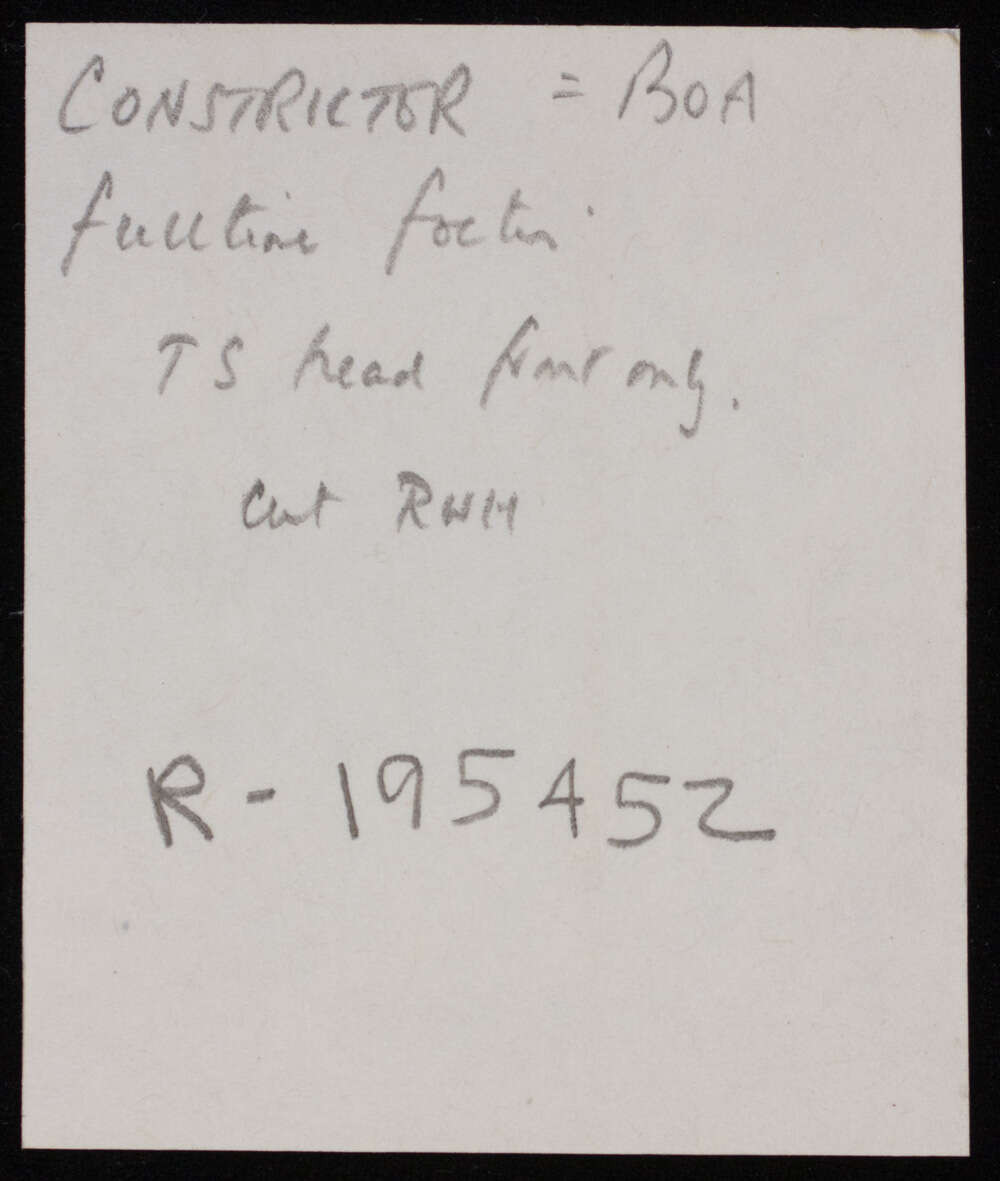 CONSTRICTOR = BOA
fulltime foetus
TS head front only.
Cut RWH
R-195452